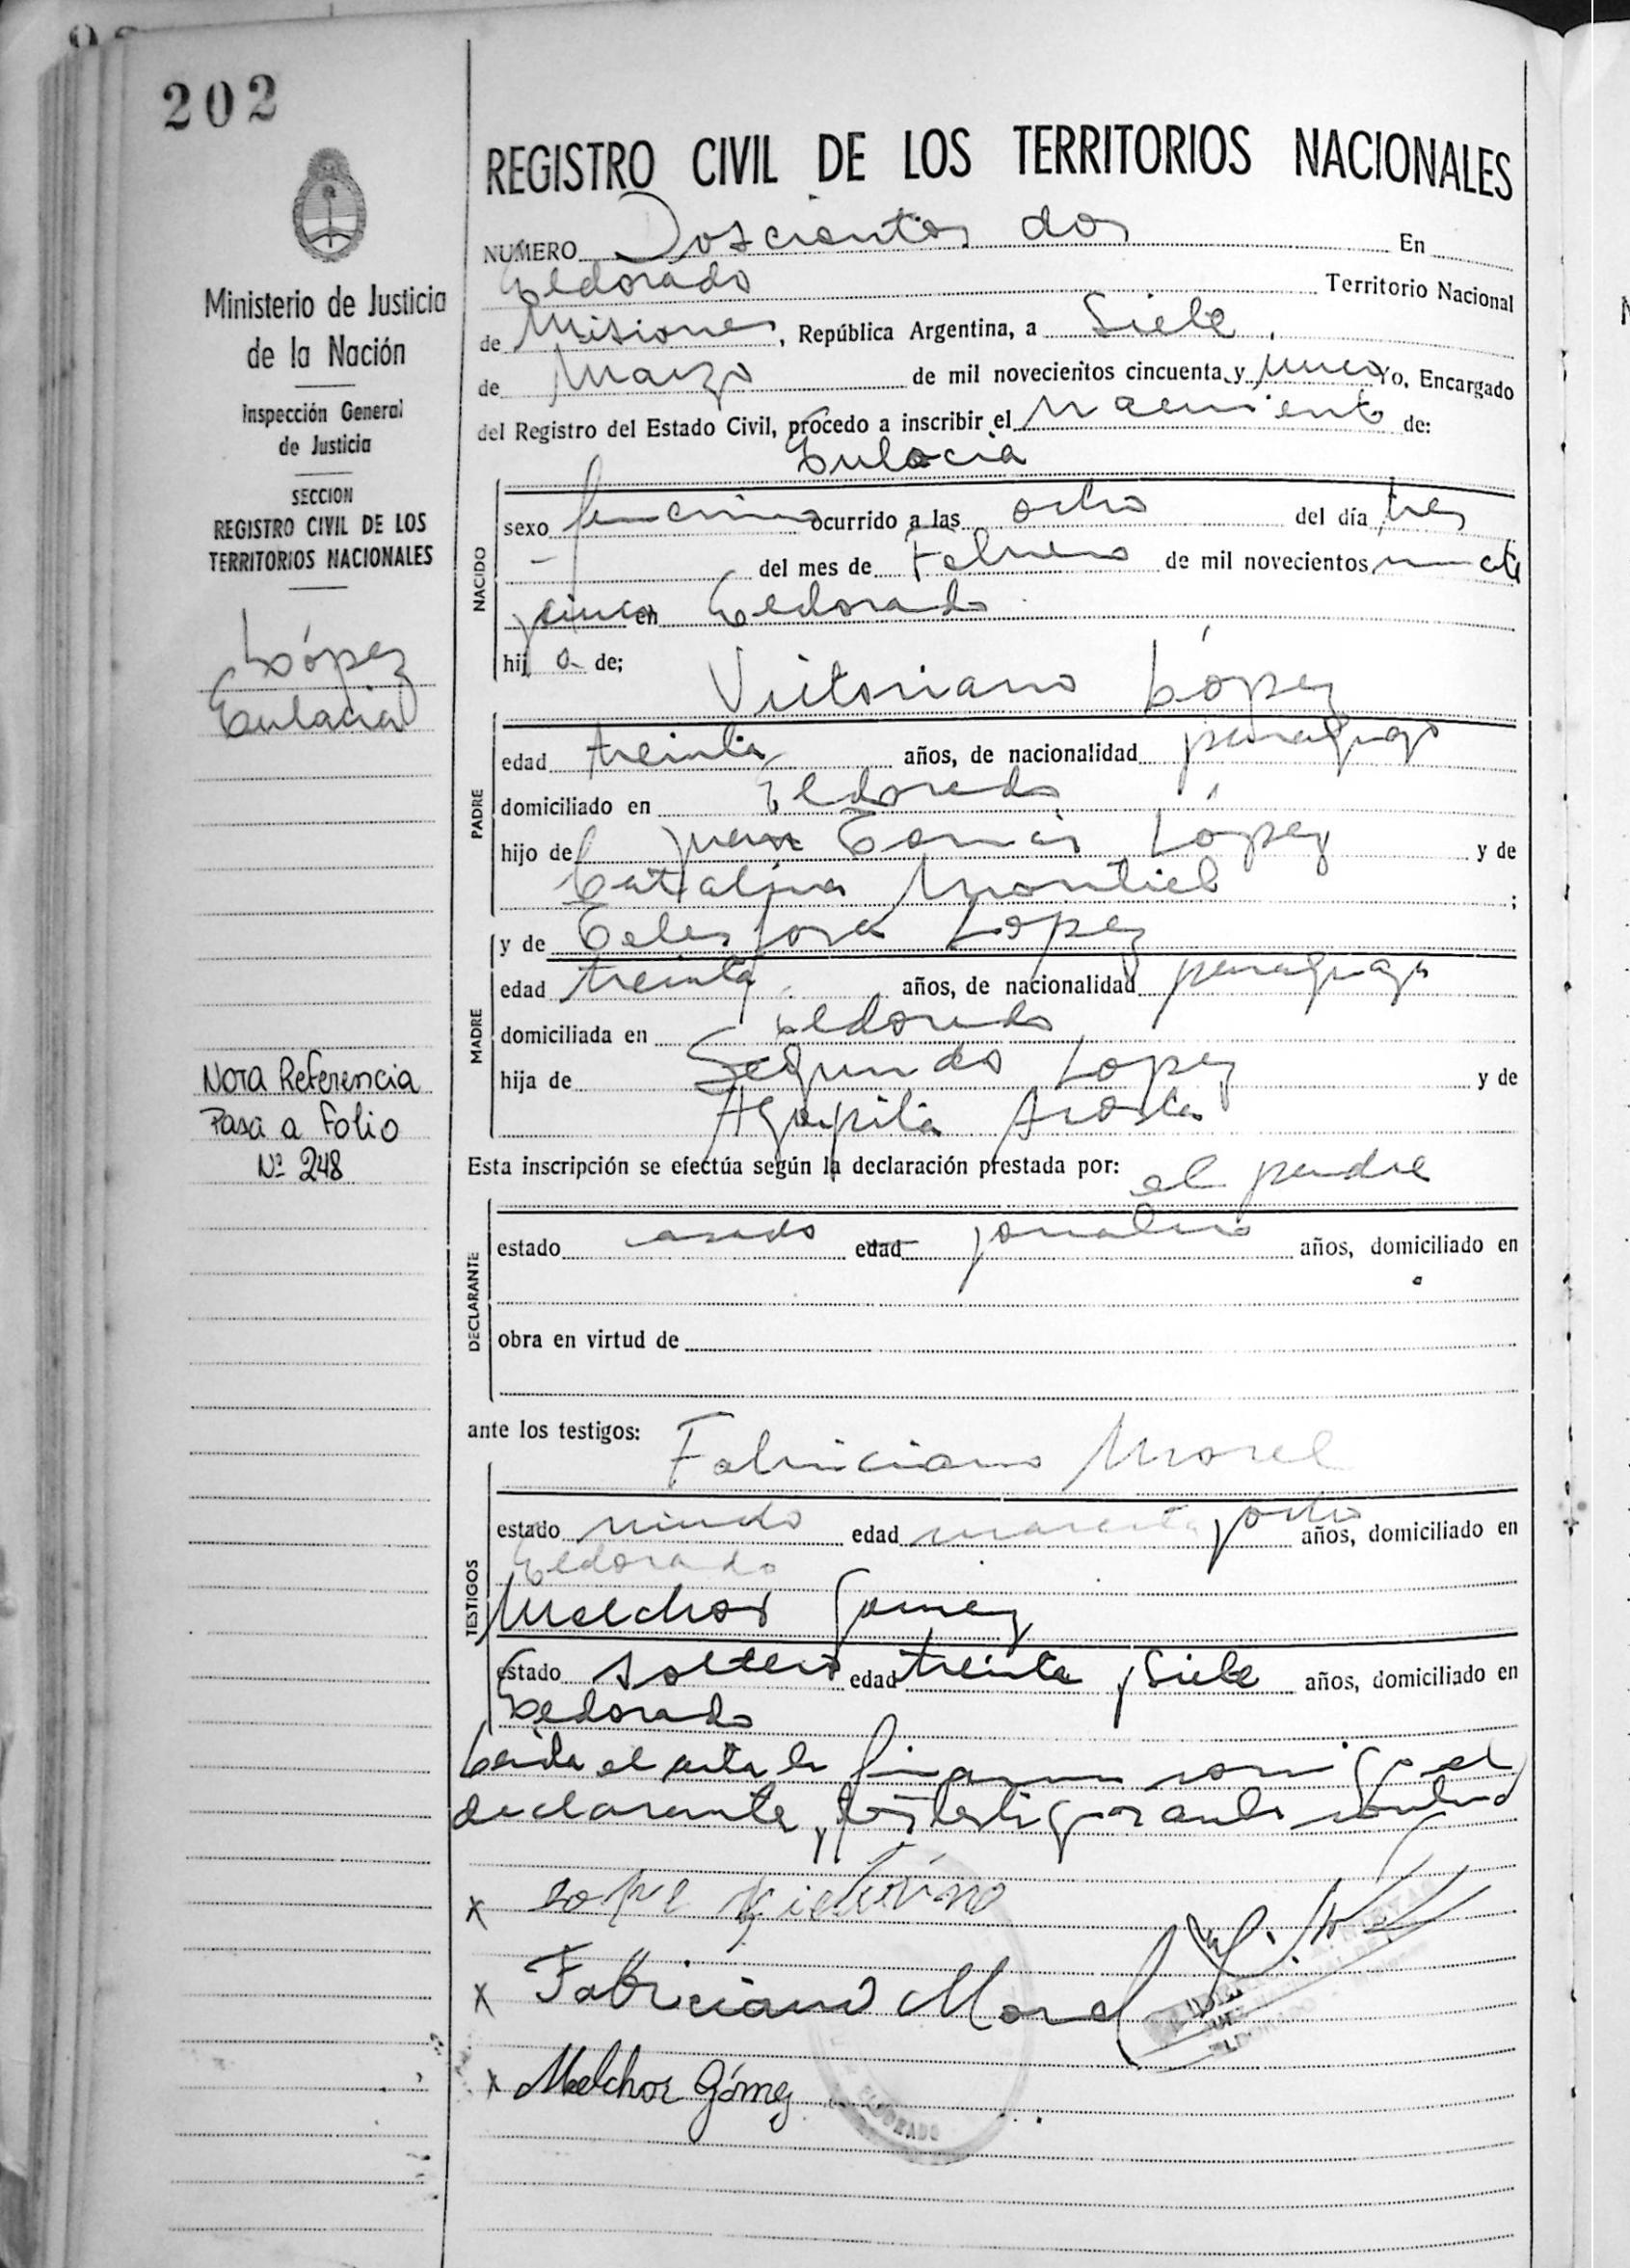 202
Ministerio de Justicia
de la Nación
Inspección General
de Justicia
SECCION
REGISTRO CIVIL DE LOS
TERRITORIOS NACIONALES
López
Eulacia
Nota Referencia
Pasa a Folio
Nº 248
REGISTRO CIVIL DE LOS TERRITORIOS NACIONALES
NUMERO Doscientos dos En
Eldorado Territorio Nacional
de Misiones, República Argentina, a Siete
de Marzo de mil novecientos cincuenta y uno Yo, Encargado
del Registro del Estado Civil, procedo a inscribir el nacimiento de:
Eulacia
NACIDO
sexo femenino ocurrido a las ocho del día tres
- del mes de Febrero de mil novecientos
y cinco en Eldorado
hija de;
Victoriano López
PADRE
edad treinta años, de nacionalidad paraguayo
domiciliado en Eldorado
hijo de Juan Tomás López y de
Catalina Montiel ;
MADRE
y de Telesfora Lopez
edad treinta años, de nacionalidad paraguaya
domiciliada en Eldorado
hija de Segundo Lopez y de
Agapita Acosta
Esta inscripción se efectúa según la declaración prestada por: el padre
DECLARANTE
estado casado edad jornalero años, domiciliado en
obra en virtud de
ante los testigos:
Fabriciano Morel
TESTIGOS
estado viudo edad cuarenta y ocho años, domiciliado en
Eldorado
Melchor Gomez
estado soltero edad treinta y siete años, domiciliado en
Eldorado
Leida el acta la firman conmigo el
declarante, y los testigos
x Lope
x Fabriciano Morel
x Melchor Gómez
ELDORADO